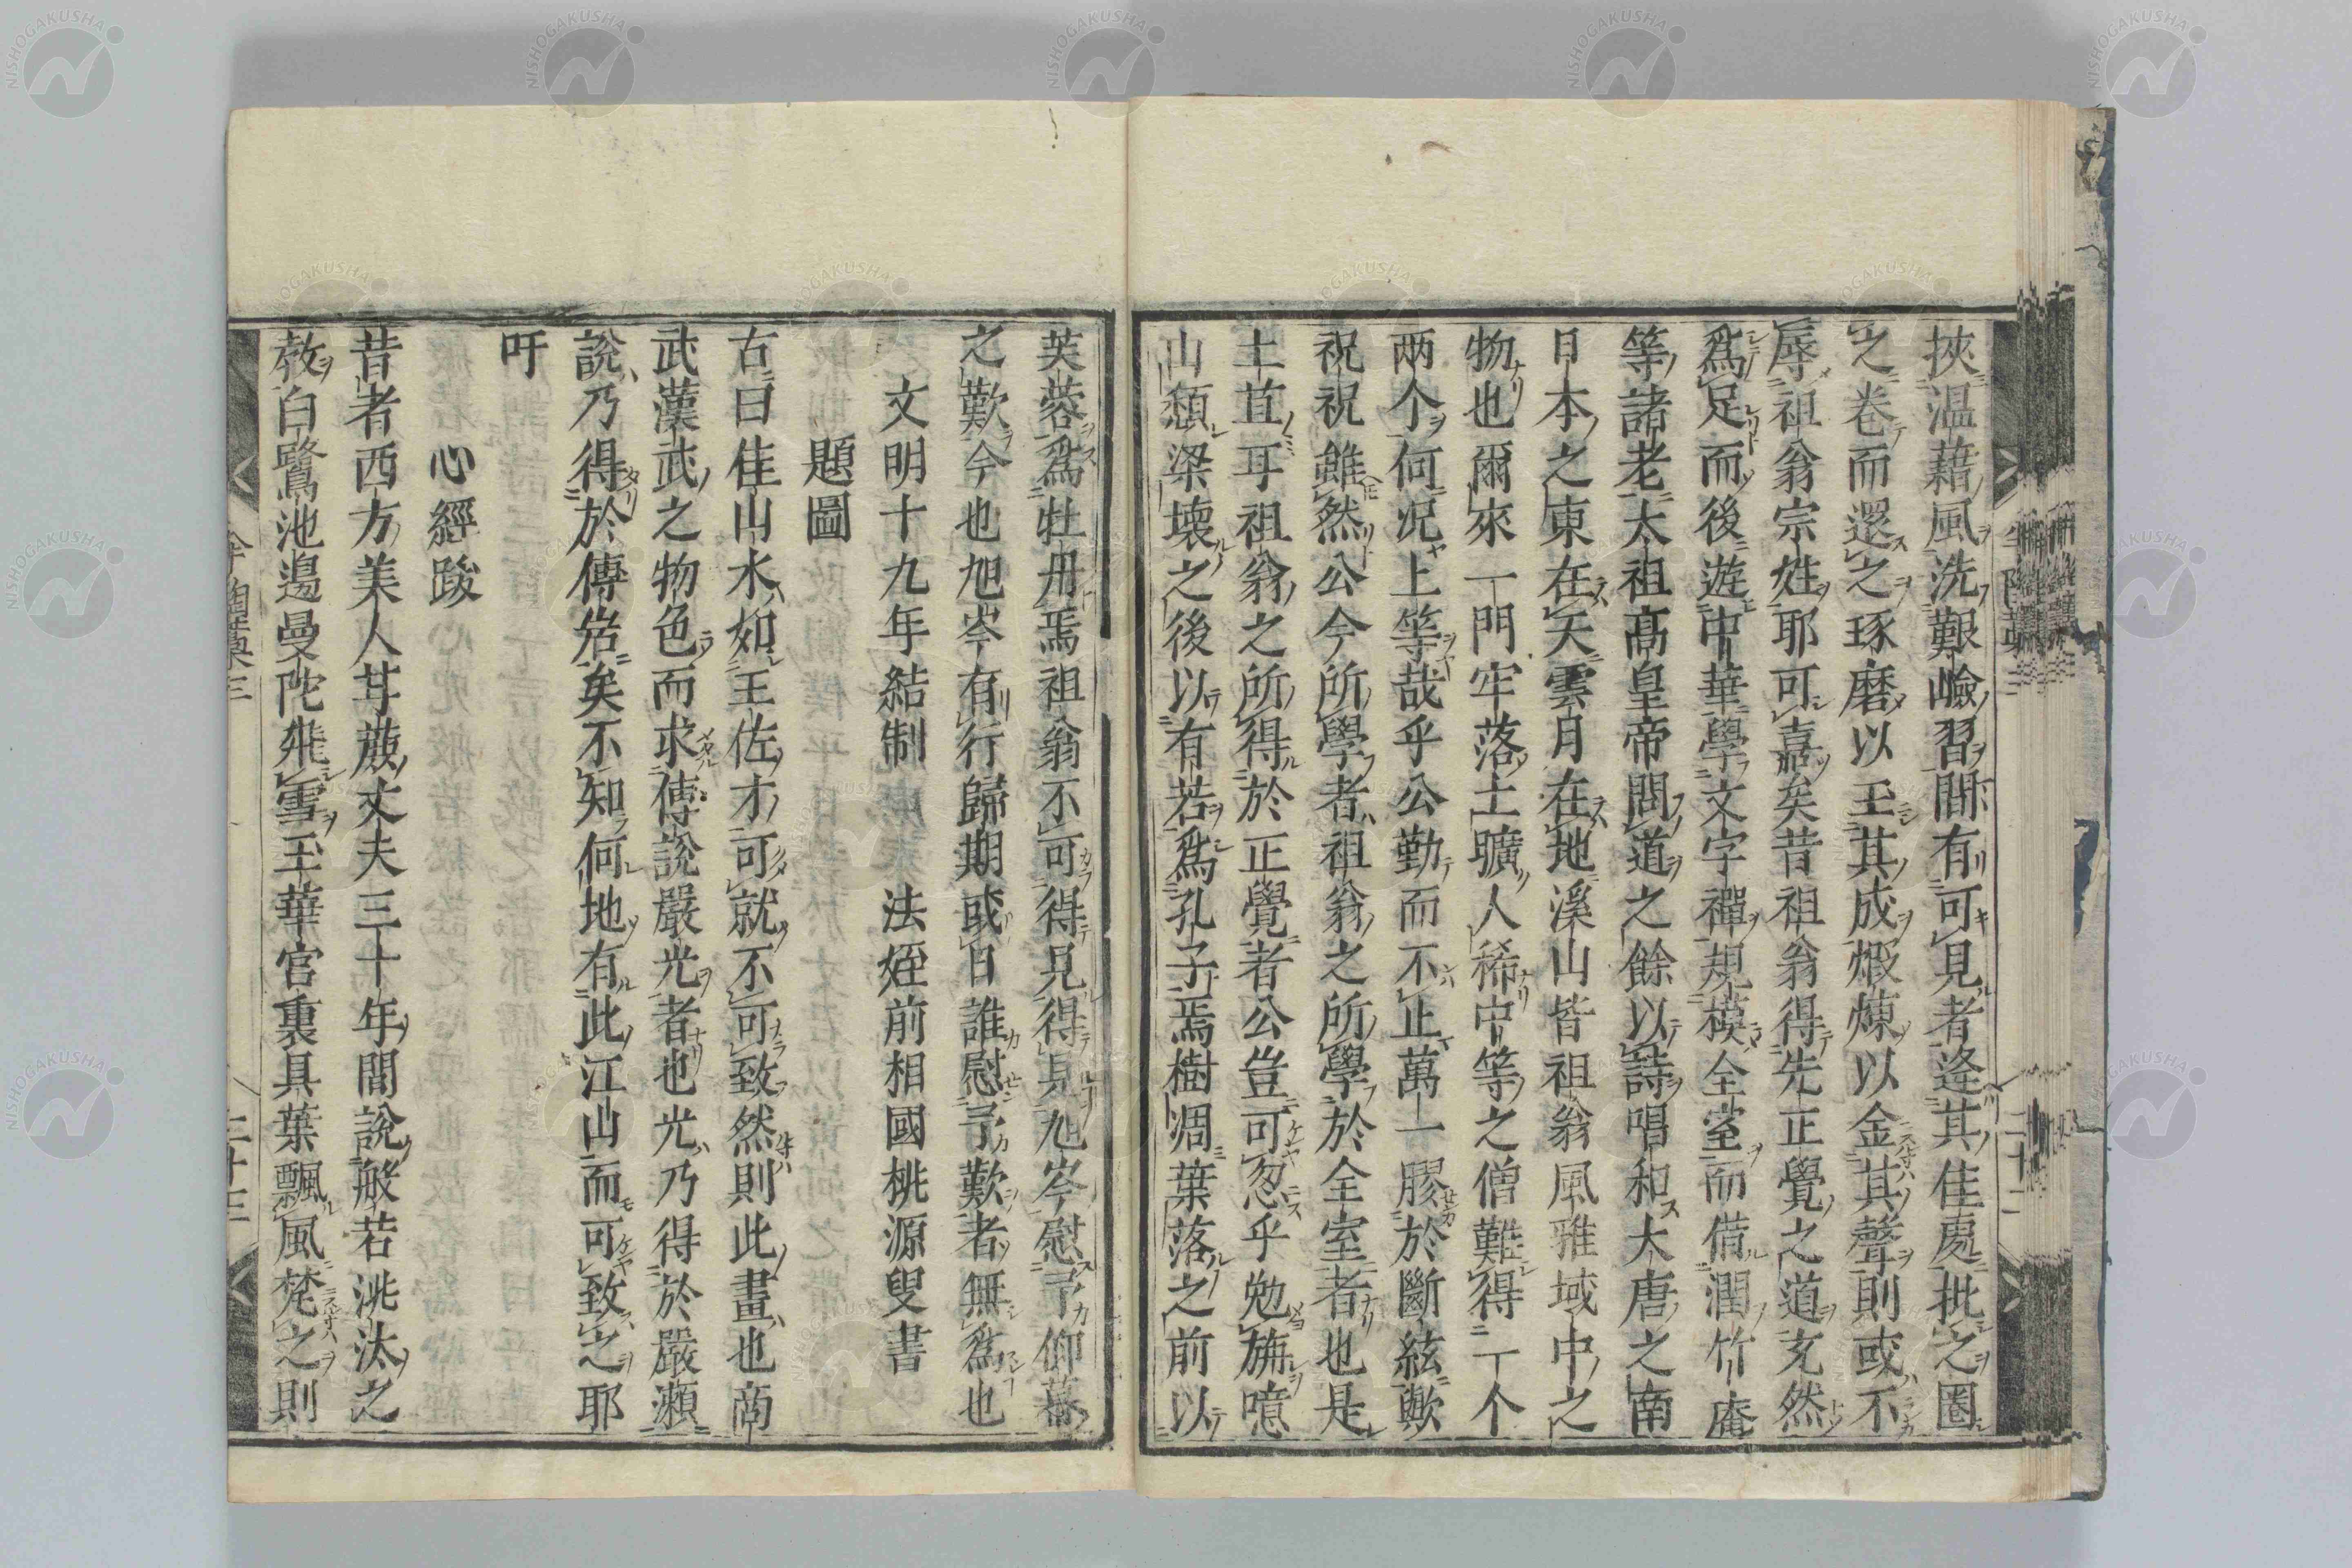 挾温藉風洗艱嶮習間有可見者逢其佳處批之圈
之卷而還之琢磨以玉其成煆煉以金其聲則或不
辱祖翁宗姓耶可嘉矣昔祖翁得先正覺之道充然
爲足而後遊中華學文字禪規模全室而借潤竹庵
等諸老太祖髙皇帝問道之餘以詩唱和大唐之南
日本之東在天雲月在地溪山皆祖翁風雅域中之
物也爾來一門牢落土曠人稀中等之僧難得一个
两个何况上等哉乎公勤而不止萬一膠於斷絃歟
祝祝雖然公今所學者祖翁之所學於全室者也是
土苴耳祖翁之所得於正覺者公豈可忽乎勉旃噫
山頽梁壊之後以有若爲孔子焉樹凋葉落之前以
芙蓉爲牡丹焉祖翁不可得見得見旭岑慰予仰慕
之歎今也旭岑有行歸期或日誰慰予歎者無爲也
文明十九年結制　法姪前相國桃源叟書
題圖
古曰佳山水如王佐才可就不可致然則此畫也商
武漢武之物色而求傅說嚴光者也光乃得於嚴瀬
說乃得於傅岩矣不知何地有此江山而可致之耶
吁
心經跋
昔者西方美人苷蔗丈夫三十年間說般若洮汰之
敎白鷺池邉曼陀飛雪王華宮裏具葉飄風梵之則